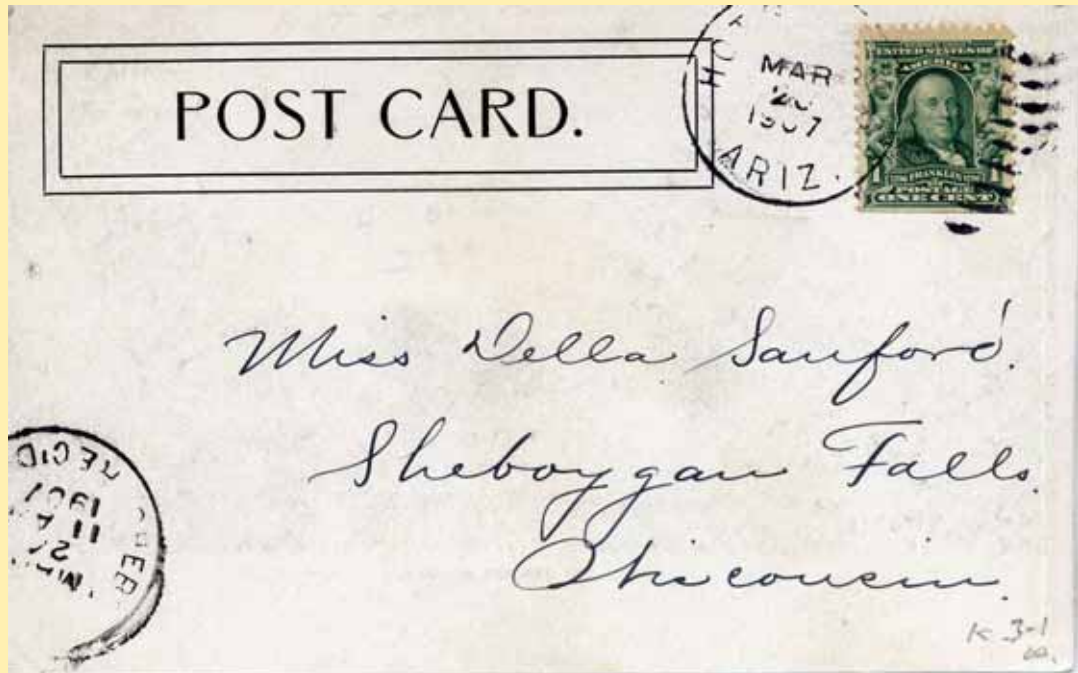 POST CARD.
MAR
1907
ARIZ.
UNITED STATES OF
AMERICA
FRANKLIN
POSTAGE
ONE CENT
Miss Della Sanford.
Sheboygan Falls.
Wisconsin.
REC'D
1907
11 A
K 3-1